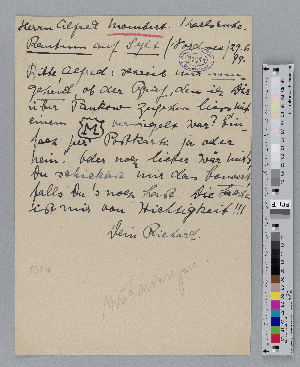 Herrn Alfred Mombert. Karlsruhe.
Rantum auf Sylt (Nordsee) 29.6
99.
Bitte Alfred: schreib mir
gehend, ob der Brief, den ich Dir
über Pankow zugehen liess mit
einem M versiegelt war? Ein-
fach per Postkarte ja oder
nein. Oder noch lieber wär mir's
Du schicktest mir das Couvert
falls Du's noch hast. Die Sache
ist mir von Wichtigkeit!!!
Dein Richard.